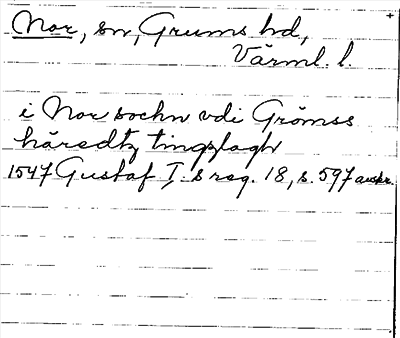 Nor, sn, Grums hd,
Värml. l.
i Nor sochn vdi Grömss
häredtz tingzlagh
1547 Gustaf I:s reg. 18, s. 597 avskr.